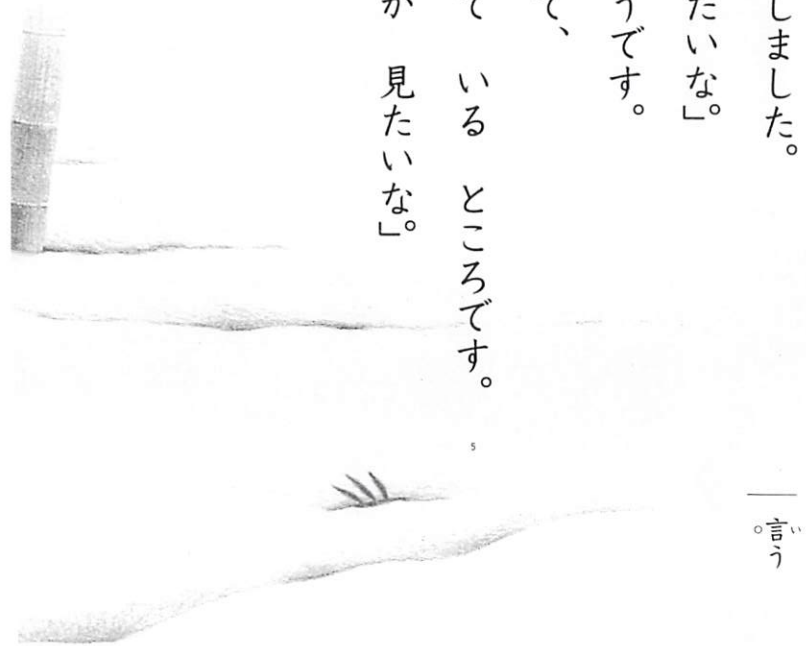 しました。
たいな。」
うです。
て、
て いる ところです。
が 見たいな。」
5
言う
い